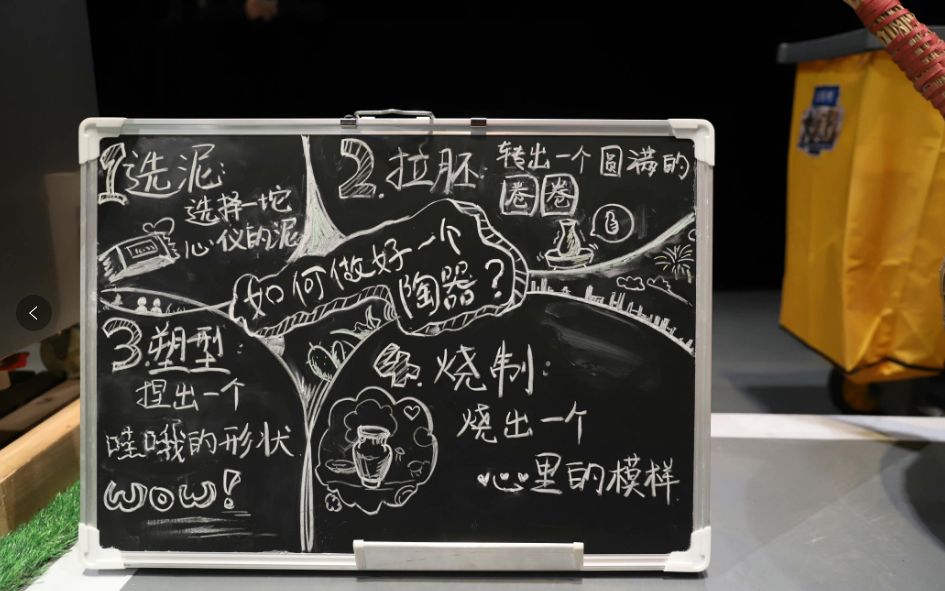 如何做好一个
陶器？
1选泥：
选择一坨
心仪的泥
2.拉胚：
转出一个圆满的
圈圈
3.塑型：
捏出一个
哇哦的形状
WOW!
4.烧制：
烧出一个
心里的模样